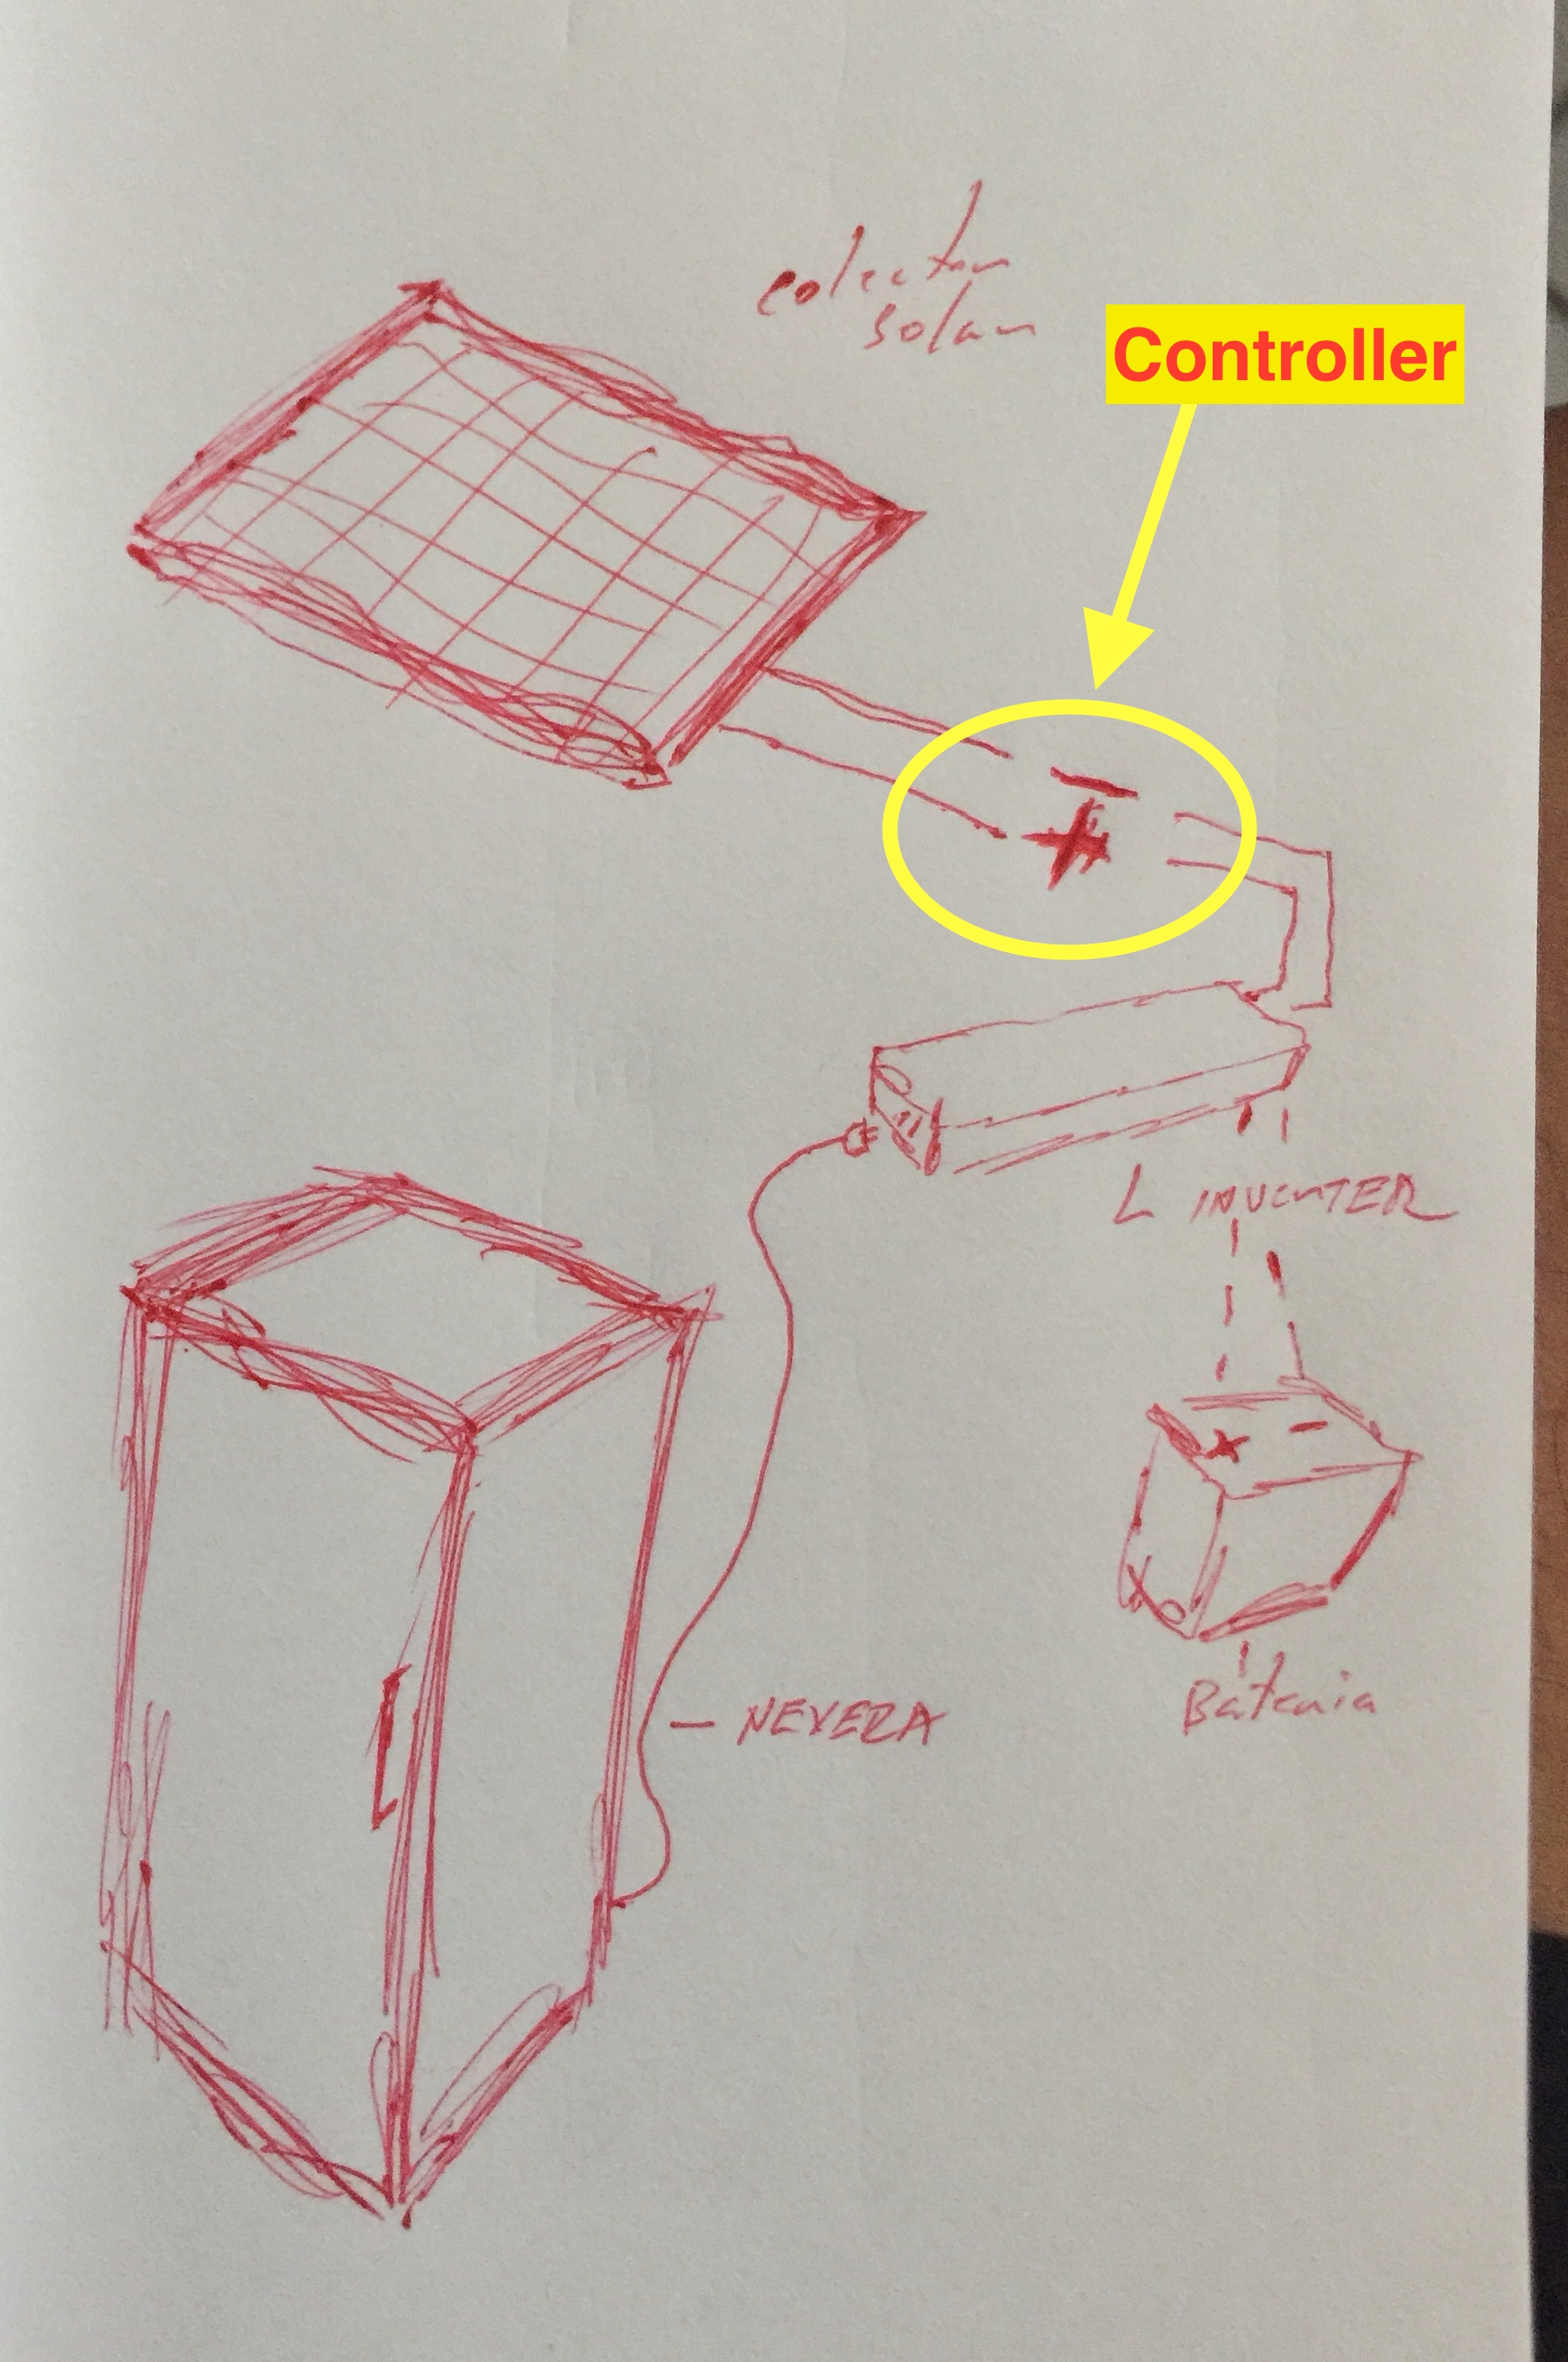 colector
solar
Controller
−
+
INVERTER
+ −
NEVERA
Bateria